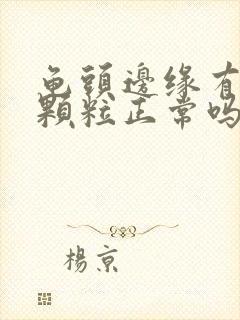 龟頭邊缘有
顆粒正常吗
楊京